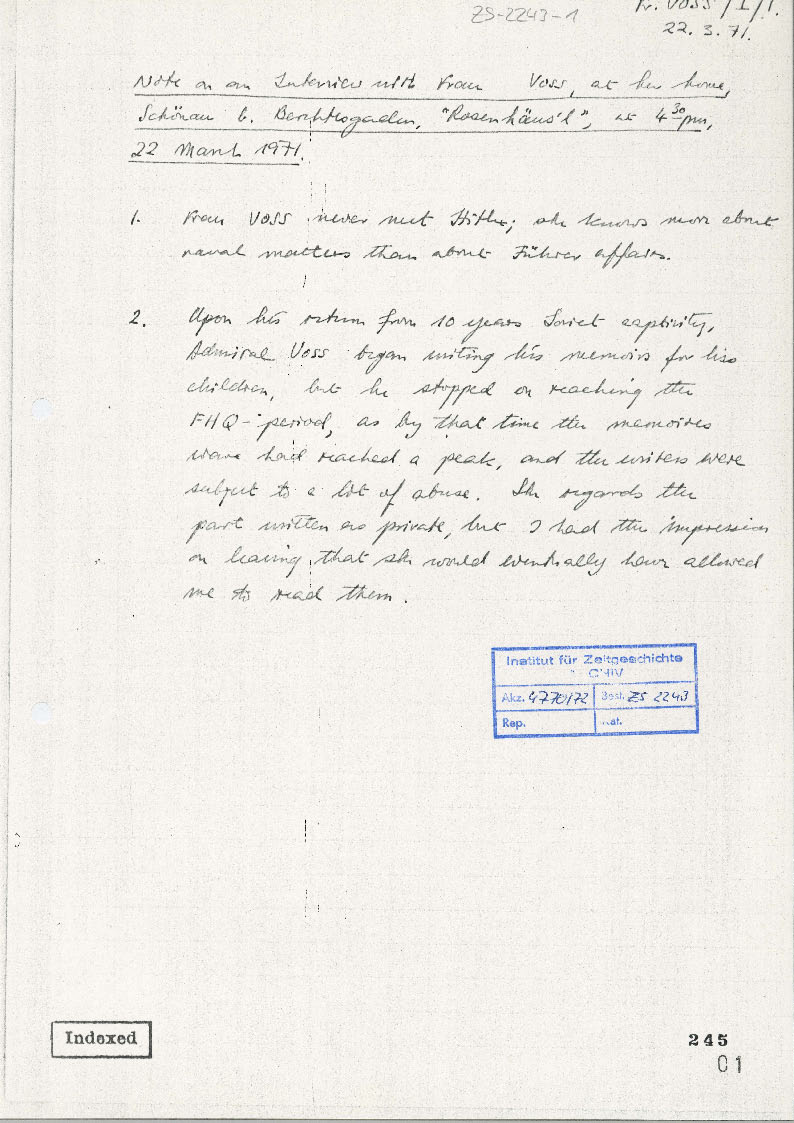 ZS-2243-1
Fr. VOSS / I / 1.
22. 3. 71.
Note on an Interview with Frau Voss, at her home,
Schönau b. Berchtesgaden, "Rosenhäus'l", at 4 30 pm,
22 March 1971.
1. Frau Voss never met Hitler; she knows more about
naval matters than about Führer affairs.
2. Upon his return from 10 years Soviet captivity,
Admiral Voss began writing his memoirs for his
children, but he stopped on reaching the
FHQ-period, as by that time the memoires
wave had reached a peak, and the writers were
subject to a lot of abuse. She regards the
part written as private, but I had the impression
on leaving that she would eventually have allowed
me to read them.
Institut für Zeitgeschichte
CHIV
Akz. 4770/72 Best. ZS 2243
Rep. Kat.
Indexed
245
01